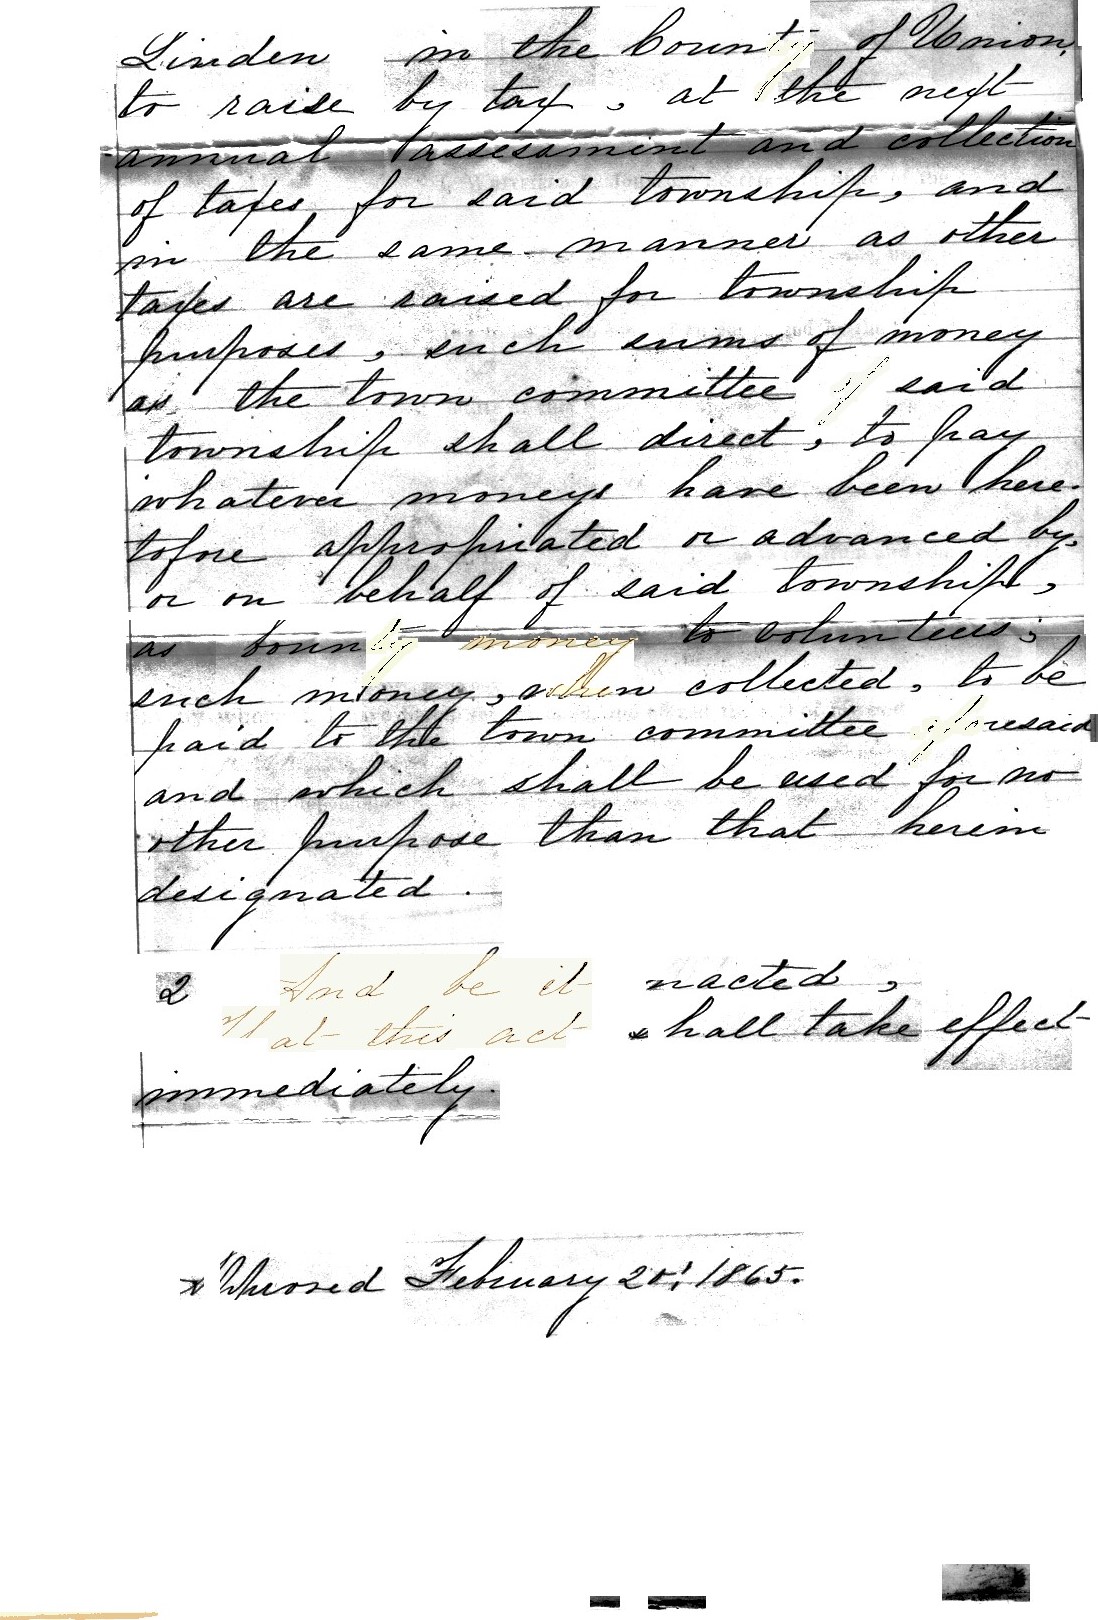 Linden in the County of Union,
to raise by tax, at the next
annual assessment and collection
of taxes for said township, and
in the same manner as other
taxes are raised for township
purposes, such sums of money
as the town committee of said
township shall direct, to pay
whatever moneys have been here-
tofore appropriated or advanced by,
or on behalf of said township,
as bounty money to volunteers;
such money, when collected, to be
paid to the town committee aforesaid
and which shall be used for no
other purpose than that herein
designated.
2 And be it nacted,
That this act shall take effect
immediately.
February 20, 1865.